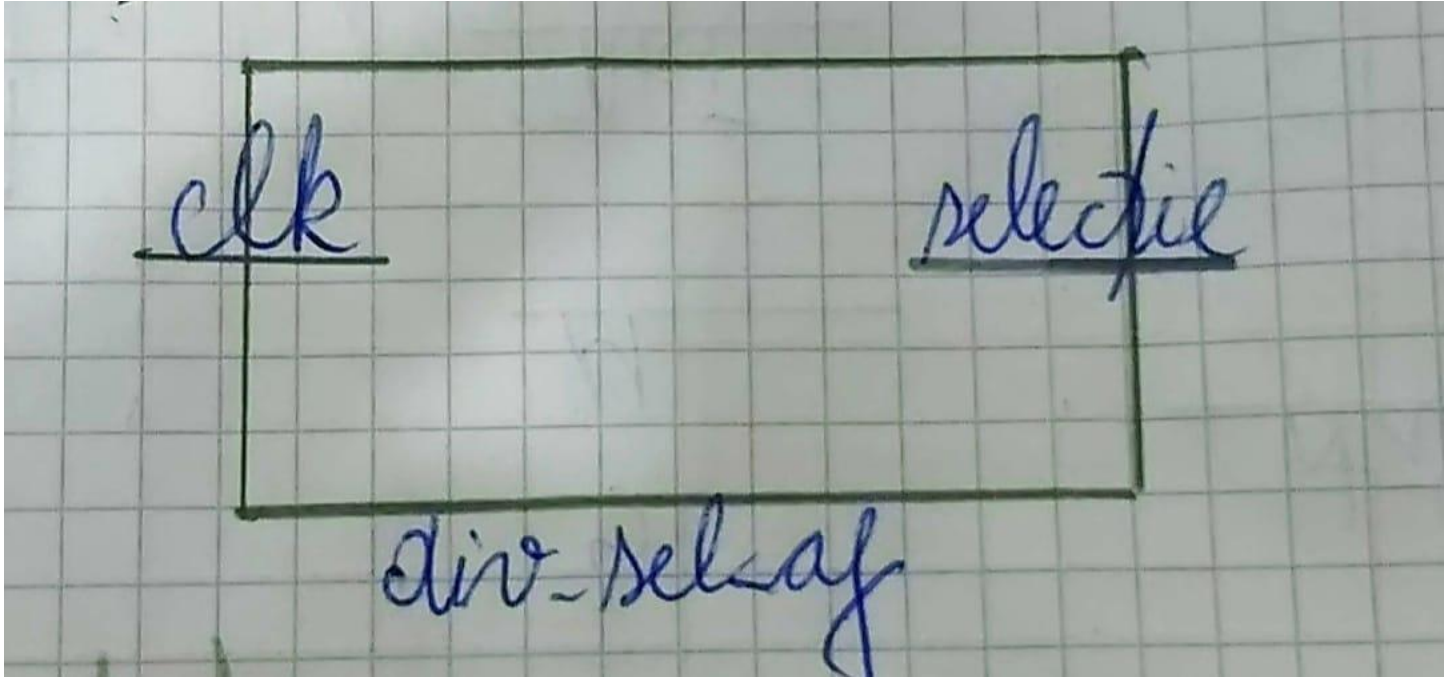 clk selecție
div_sel_af